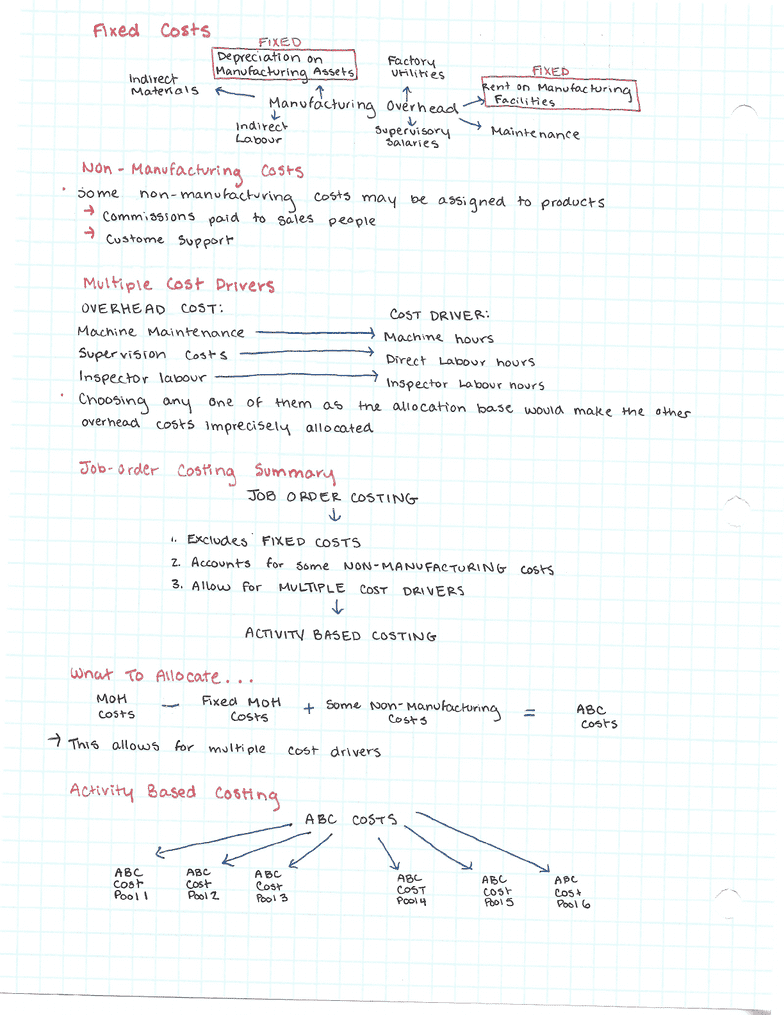 Fixed Costs
FIXED
Depreciation on
Manufacturing Assets
Factory
Utilities
FIXED
Rent on Manufacturing
Facilities
Indirect
Materials
Manufacturing Overhead
Indirect
Labour
Supervisory
Salaries
Maintenance
Non-Manufacturing Costs
• Some non-manufacturing costs may be assigned to products
→ Commissions paid to sales people
→ Custome Support
Multiple Cost Drivers
OVERHEAD COST:
COST DRIVER:
Machine Maintenance → Machine hours
Supervision Costs → Direct Labour hours
Inspector labour → Inspector Labour hours
• Choosing any one of them as the allocation base would make the other
overhead costs imprecisely allocated
Job-Order Costing Summary
JOB ORDER COSTING
↓
1. Excludes FIXED COSTS
2. Accounts for some NON-MANUFACTURING costs
3. Allow for MULTIPLE COST DRIVERS
↓
ACTIVITY BASED COSTING
What To Allocate...
MOH
costs
—
Fixed MOH
Costs
+
Some Non-Manufacturing
Costs
=
ABC
costs
→ This allows for multiple cost drivers
Activity Based Costing
ABC COSTS
ABC
Cost
Pool 1
ABC
Cost
Pool 2
ABC
Cost
Pool 3
ABC
COST
Pool 4
ABC
Cost
Pool 5
ABC
Cost
Pool 6